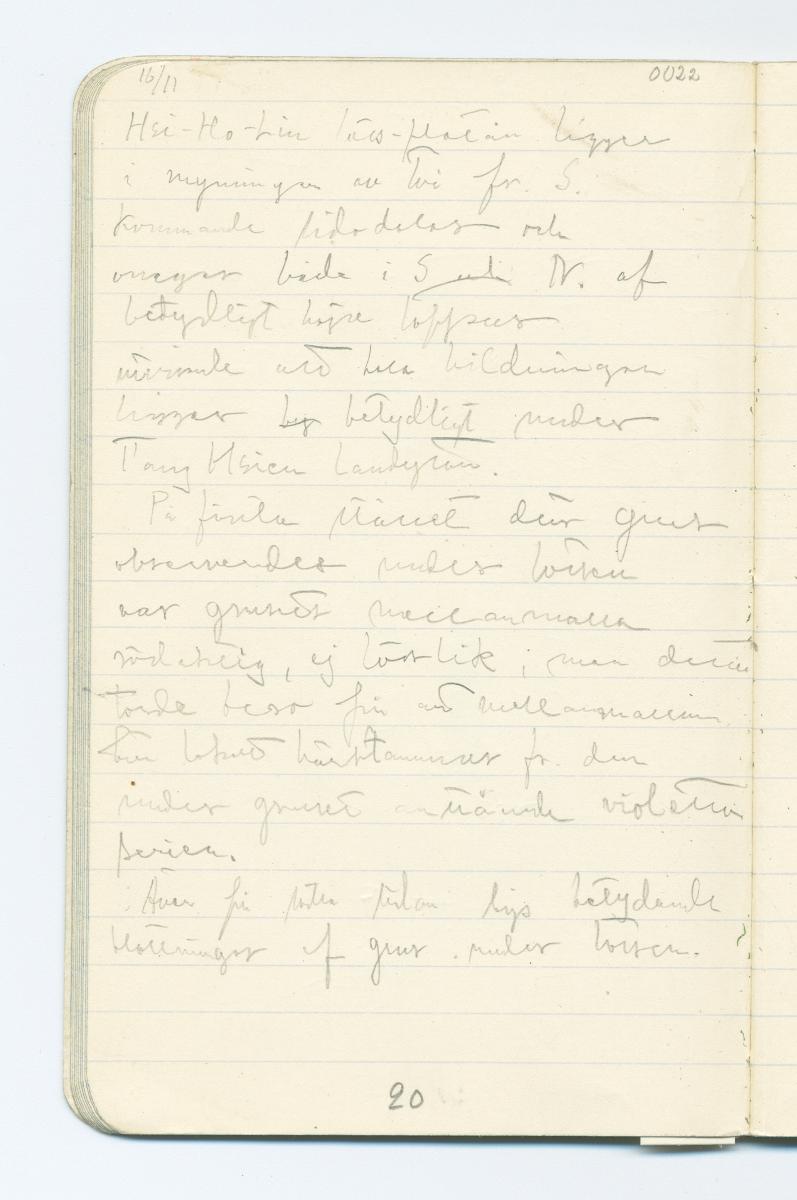 16/11
0022
Hsi-Ho-Lin löss-platån ligger
i mynningen av två fr. S.
kommande sidodalar och
omges både i S och N. af
betydligt högre toppar
utvisande att hela bildningen
ligger betydligt under
Tang Hsien landytan.
På första stället där grus
observerades under lössen
var grusets mellanmassa
rödaktig, ej lösslik; men detta
torde bero på att mellanmassan
härstammar fr. den
under gruset anstående violetta
serien.
Även på södra sidan betydande
blottningar af grus under lössen.
20